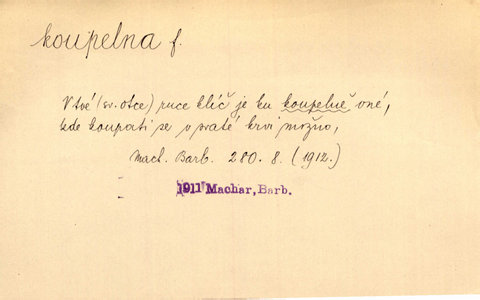 koupelna f.
V tvé (sv. otce) ruce klíč je ku koupelně oné,
kde koupati se v svaté krvi možno,
Mach. Barb. 280. 8. (1912.)
1911 Machar, Barb.